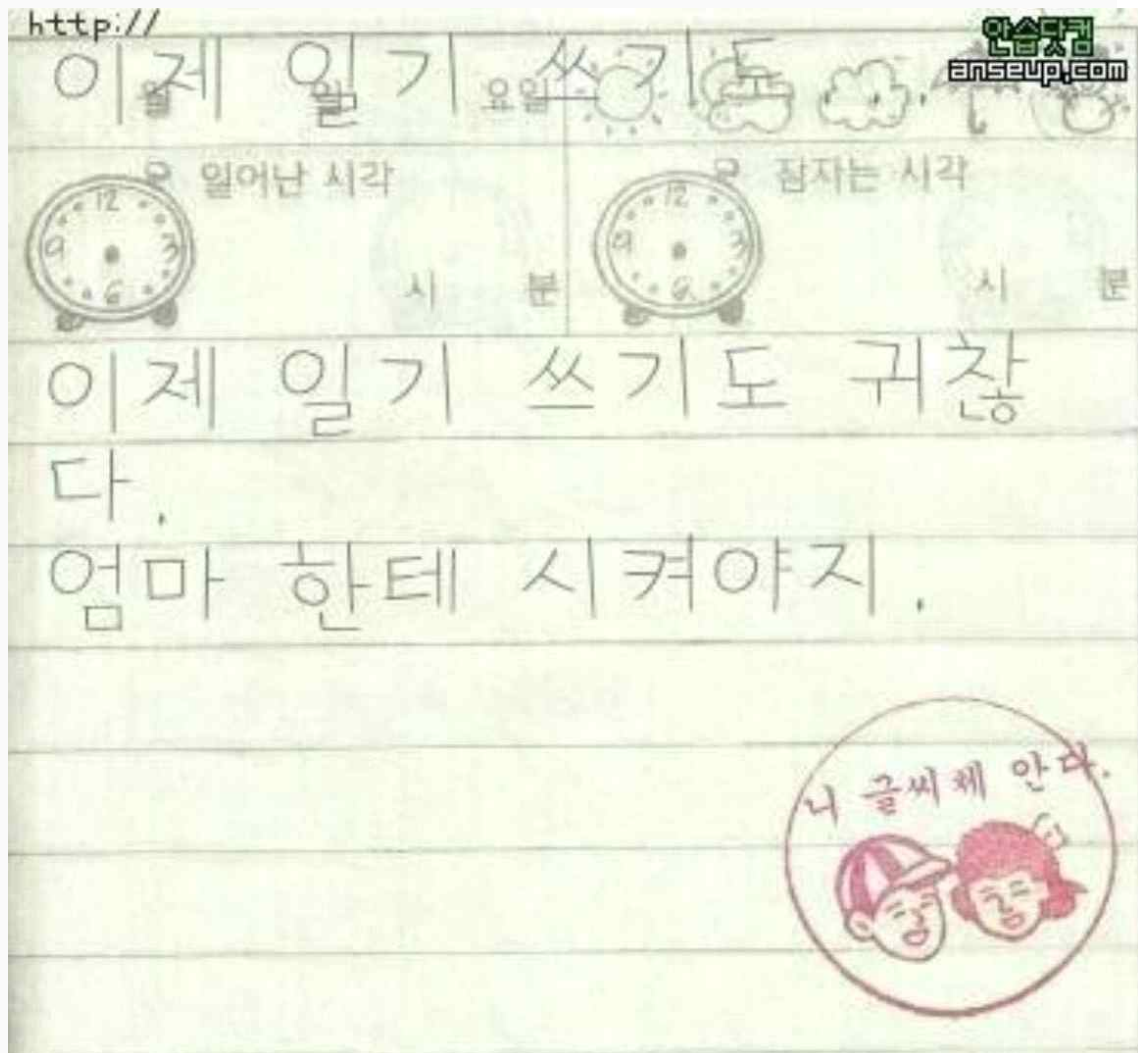 http://
안습닷컴
anseup.com
이제 일기 쓰기도.
월 일 요일
일어난 시각 잠자는 시각
12 12
9 3 9 3
6 시 분 6 시 분
이제 일기 쓰기도 귀찮
다.
엄마 한테 시켜야지.
니 글씨체 안다.